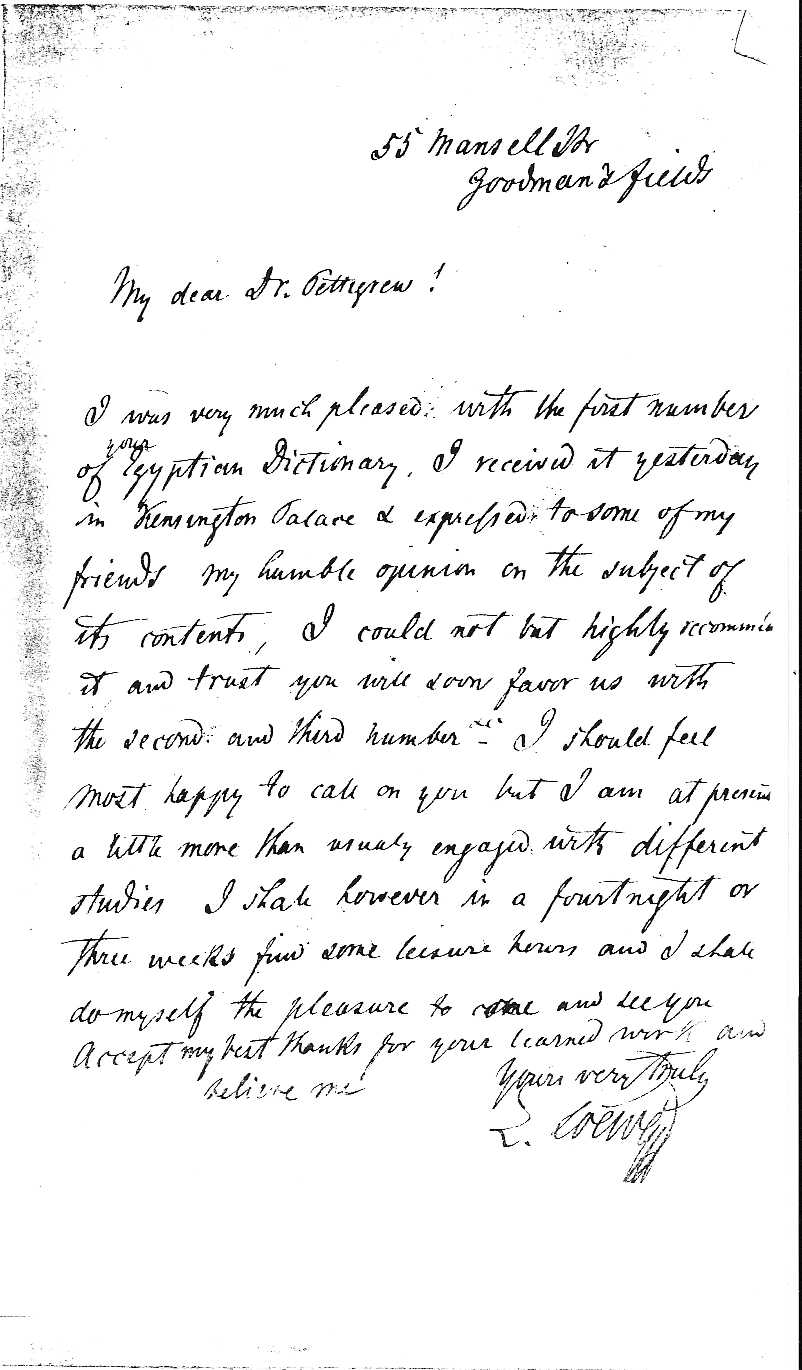 55 Mansell Str
Goodman's fields
My dear Dr. Pettigrew!
I was very much pleased with the first number
your
of Egyptian Dictionary, I received it yesterday
in Kensington Palace & expressed to some of my
friends my humble opinion on the subject of
its contents, I could not but highly recommen
it and trust you will soon favor us with
the second and third number I should feel
most happy to call on you but I am at present
a little more than usualy engaged with different
studies I shall however in a fourtnight or
three weeks find some leisure hours and I shall
do myself the pleasure to come and see you
Accept my best thanks for your learned work and
believe me
Yours very truly
L. Loewe